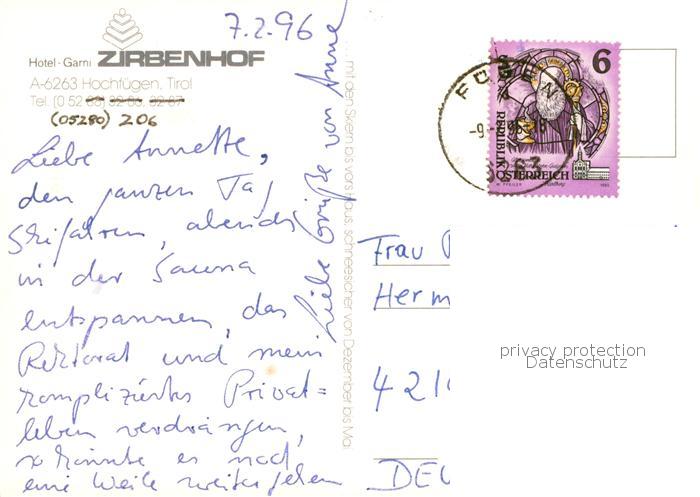 7.2.96
Hotel - Garni ZIRBENHOF
A-6263 Hochfügen, Tirol
Tel. (0 52
(05280) 206
Liebe Annette,
den ganzen Tag
Skifahren, abends
in der Sauna
entspannen, das
Rektorat und mein
kompliziertes Privat=
leben verdrängen,
so könnte es noch
eine Weile weitergehen
Liebe Grüße von Anne
... mit den Skiern bis vors Haus, schneesicher von Dezember bis Mai
FÜGEN
6
REPUBLIK
ÖSTERREICH
Frau
Herm
421
DEU
privacy protection
Datenschutz